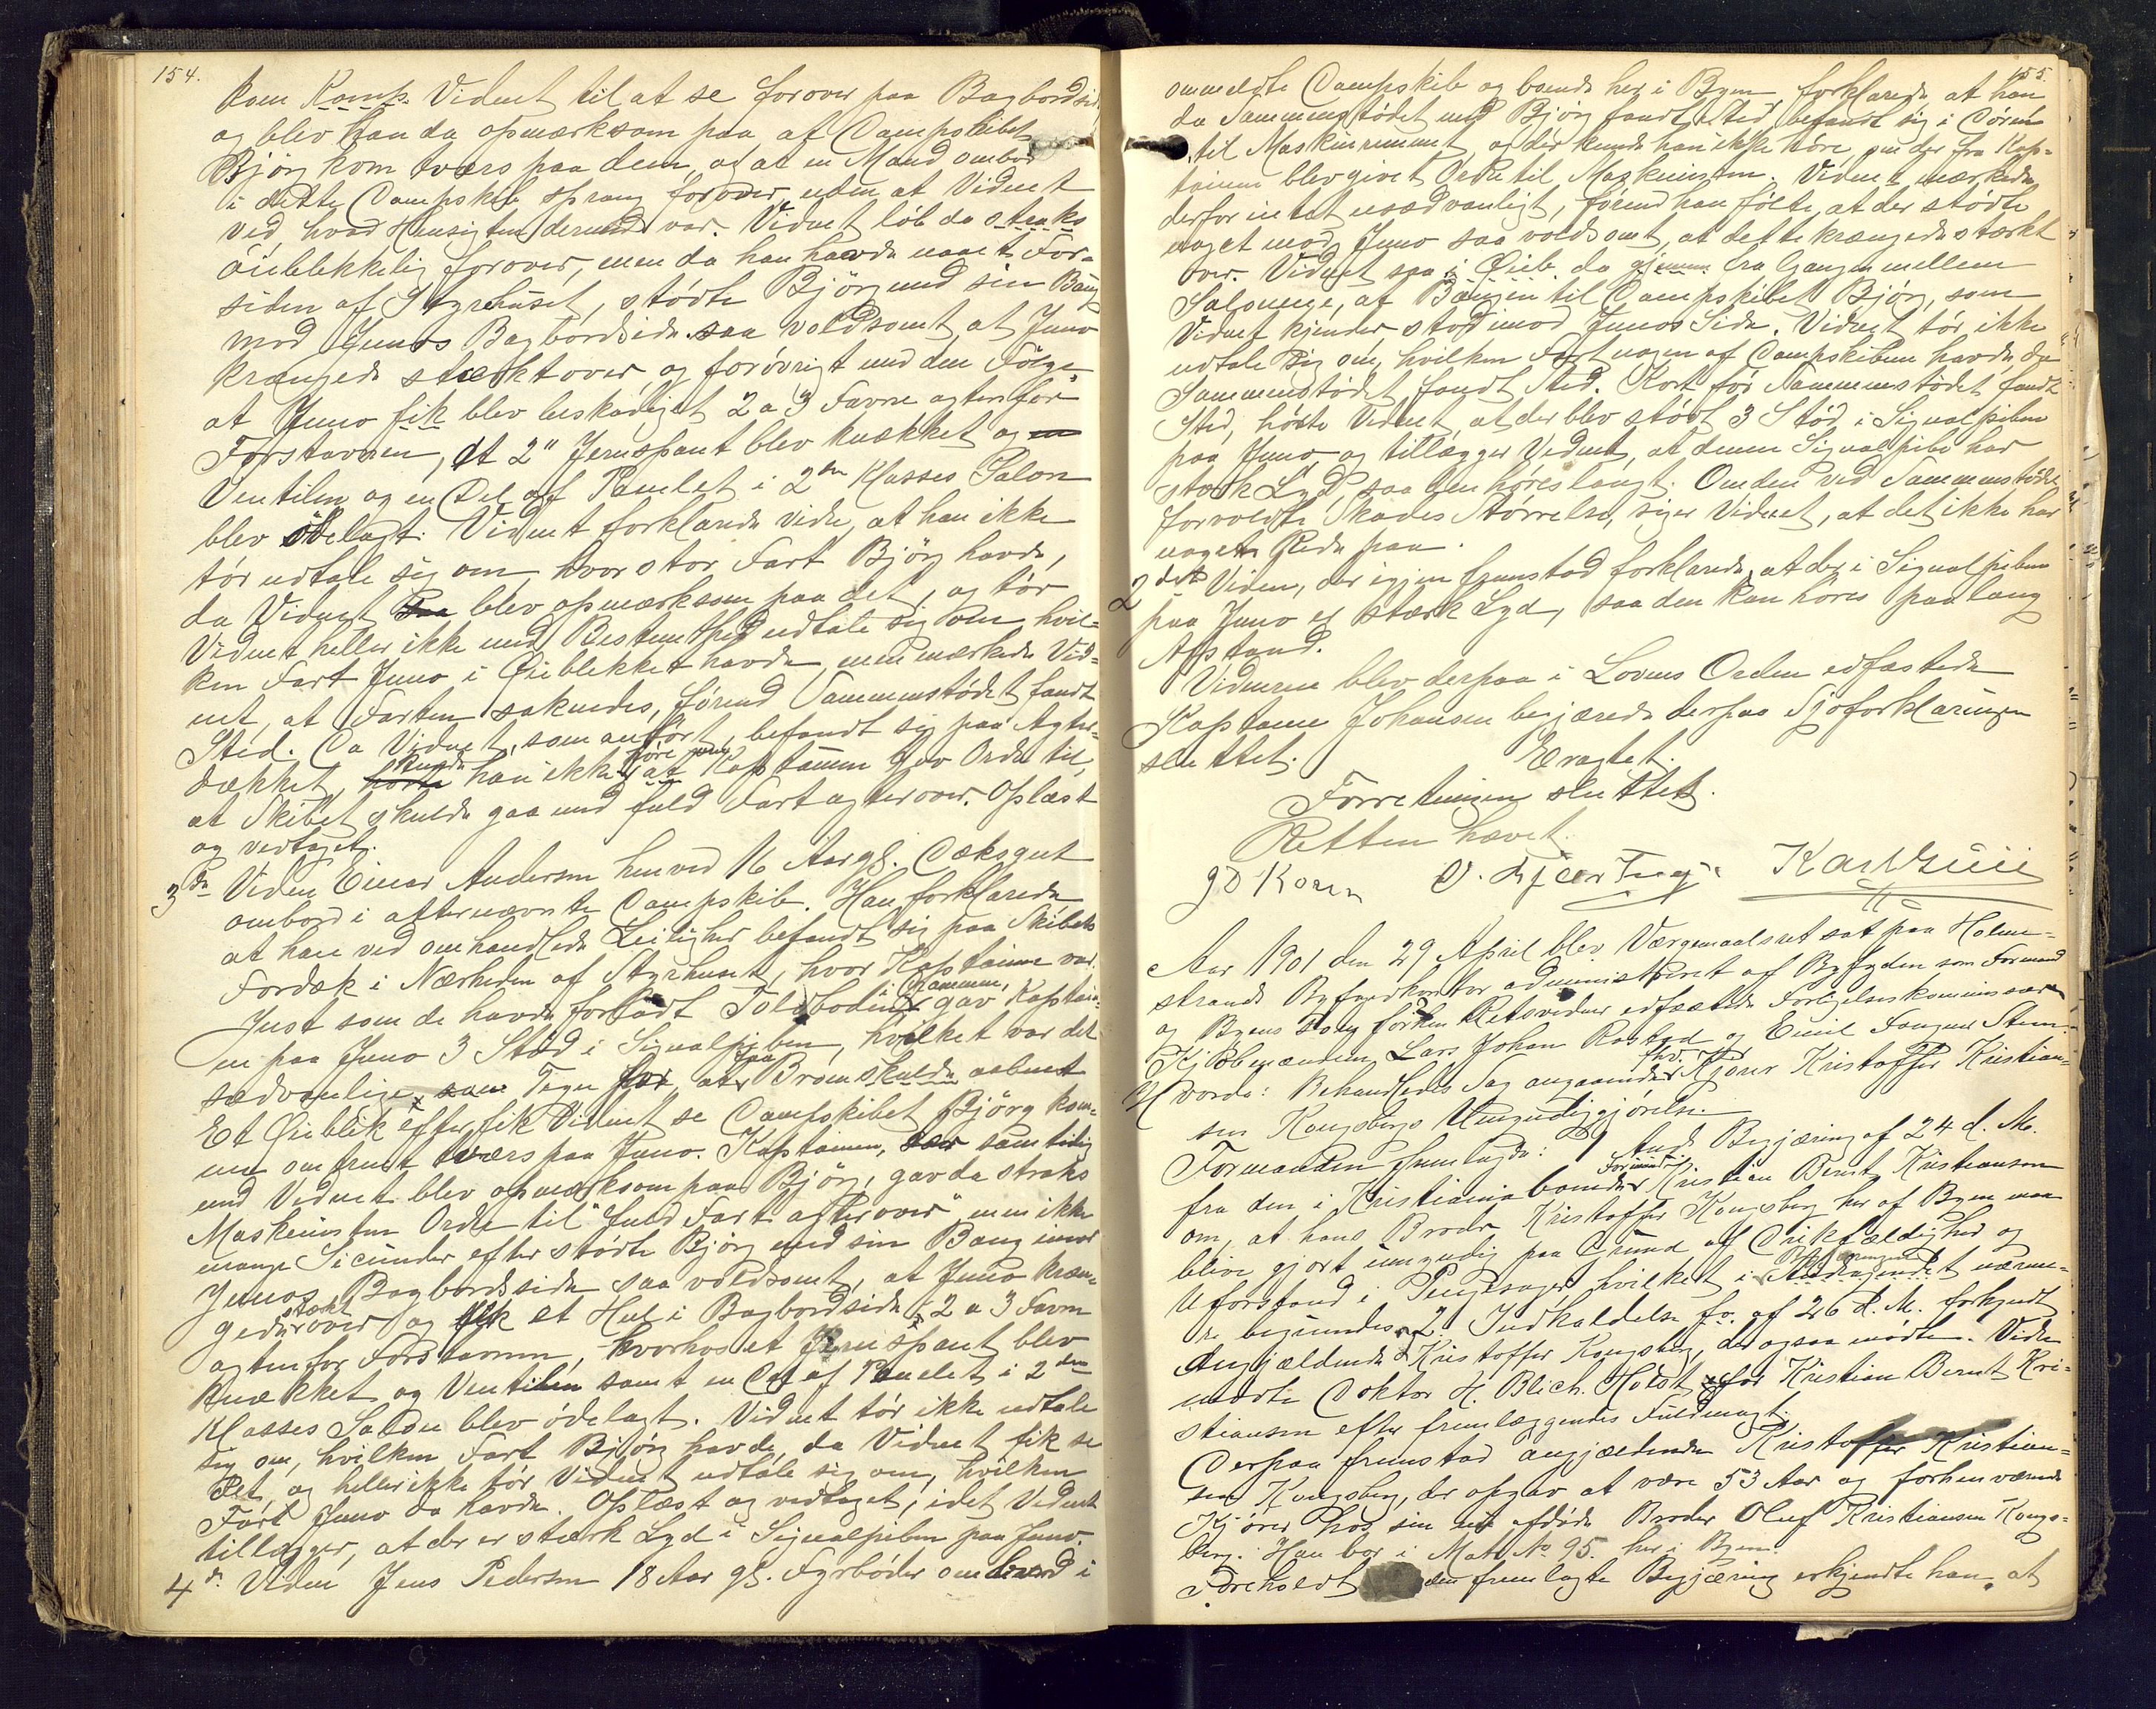 154.
kom Komp. Vidnet til at se forover paa Bagbordsid,
og blev han da opmærksom paa at Dampskibet
Bjørg kom tværs paa dem, og at en Mand ombord
i dette Dampskib sprang forover, uden at Vidnet
ved, hvad Hensigten dermed var. Vidnet løb da straks
øieblikkelig forover, men da han havde naaet For-
siden af Styrehuset, stødte Bjørg med sin Baug
mod Junos Bagbordside saa voldsomt, at Juno
krængede stærkt over, og forøvrigt med den Følge
at Juno fik blev beskadiget 2 a 3 Favne agtenfor
Forstavnen, et 2" Jernspant blev knækket og en
Ventilen og en Del af Panelet i 2den Klasses Salon
blev ødelagt. Vidnet forklarede vidre, at han ikke
tør udtale sig om, hvor stor Fart Bjørg havde,
da Vidnet saa blev opmærksom paa det, og tør
Vidnet heller ikke med Bestemthed udtale sig om, hvil-
ken Fart Juno i Øieblikket havde, men mærkede Vid-
net, at Farten saknedes, førend Sammenstødet fandt
Sted. Da Vidnet, som anført, befandt sig paa Agter-
dækket, hørte kunde han ikke høre at Kaptainen gav Ordre til,
at Skibet skulde gaa med fuld Fart agterover. Oplæst
og vedtaget.
3die Vidne Einar Andersen henved 16 Aar gl. Dæksgut
ombord i afternævnte Dampskib. Han forklarede
at han ved omhandlede Leilighed befandt sig paa Skibets
Fordæk i Nærheden af Styrhuset, hvor Kaptainen var.
Just som de havde forladt Toldboden i Drammen, gav Kaptain-
en paa Juno 3 Stød i Signalpiben, hvilket var det
sædvanlige som Tegn for paa, at Broen skulde aabnes
Et Øieblik efter fik Vidnet se Dampskibet Bjørg kom-
me omtrent tværs paa Juno. Kaptainen, som samtidig
med Vidnet blev opmærksom paa Bjørg, gav da straks
Maskinisten Ordre til "Fuld Fart agterover" men ikke
mange Secunder efter stødte Bjørg med sin Baug imod
Junos Bagbordsside saa voldsomt, at Juno kræn-
gede stærkt over og fik et Hul i Bagbordside 2 a 3 Favne
agtenfor Forstavnen, hvorhos et Jernspant blev
knækket og Ventilen samt en Del af Panelet i 2den
Klasses Salon blev ødelagt. Vidnet tør ikke udtale
sig om, hvilken Fart Bjørg havde, da Vidnet fik se
det, og heller ikke tør Vidnet udtale sig om, hvilken
Fart Juno da havde. Oplæst og vedtaget, idet Vidnet
tillægger, at der er stærk Lyd i Signalpiben paa Juno.
4de Vidne Jens Pedersen 18 Aar gl. Fyrbøder ombord i
155.
ommeldte Dampskib og boende her i Byen, forklarede, at han
da Sammenstødet med Bjørg fandt Sted, befandt sig i Døren
til Maskinrummet, og der kunde han ikke høre, om der fra Kap-
tainen blev givet Ordre til Maskinisten. Vidnet mærkede
derfor intet usædvanligt, førend han følte, at der stødte
noget mod Juno saa voldsomt, at dette krængede stærkt
over. Vidnet saa i Øieb. da gjennem fra Gangen mellem
Salonerne, at Baugen til Dampskibet Bjørg, som
Vidnet kjender, stod imod Junos Side. Vidnet tør ikke
udtale sig om, hvilken Fart nogen af Dampskibene havde, da
Sammenstødet fandt Sted. Kort før Sammenstødet fandt
Sted, hørte Vidnet, at der blev stødt 3 Stød i Signalpiben
paa Juno og tillægger Vidnet, at denne Signalpibe har
stærk Lyd, saa den høres langt. Om den ved Sammenstødet
forvoldte Skades Størrelse, siger Vidnet, at det ikke har
noget Rede paa.
2det Vidne, der igjen fremstod forklarede, at der i Signalpiben
paa Juno er stærk Lyd, saa den kan høres paa lang
Afstand.
Vidnerne blev derpaa i Lovens Orden edfæstede
Kaptainen Johansen begjærede derpaa Sjøforklaringen
sluttet.
Eragtet.
Forretningen sluttet.
Retten hævet.
Aar 1901 den 29 April blev Værgemaalsret sat paa Holme-
strands Byfogedkontor administreret af Byfogden som Formand
og Byens Retsvidner edfæstede Forligelseskommissærer
Kjøbmændene Lars Johan Rostad og Emil Fougner Sten.
Hvorda: Behandledes Sag angaaende fhv. Kjører Kristoffer Kristian-
sen Kongsbergs Umyndiggjørelse.
Formanden fremlagde: 1 Andr. Begjæring af 24 d. M.
fra den i Kristiania boende Formand Kristian Bernt Kristiansen
om, at hans Broder Kristoffer Kongsberg her af Byen maa
blive gjort umyndig paa Grund af Drikfældighed og
Uforstand i Pengesager hvilket i Andragendet Begjæringen nærme-
re begrundes. 2. Indkaldelse fo. af 26 d. M. forkyndt
Angjældende Kristoffer Kongsberg, der ogsaa mødte. Videre
mødte Doktor H. Blich. Holst for Kristian Bernt Kri-
stiansen efter fremlæggendes Fuldmagt.
Derpaa fremstod angjældende Kristoffer Kristian-
sen Kongsberg, der opgav at være 53 Aar og forhenværende
Kjører hos sin nu afdøde Broder Oluf Kristiansen Kongs-
berg. Han bor i Matr. No 95. her i Byen.
Foreholdt den fremlagte Begjæring erkjendte han, at